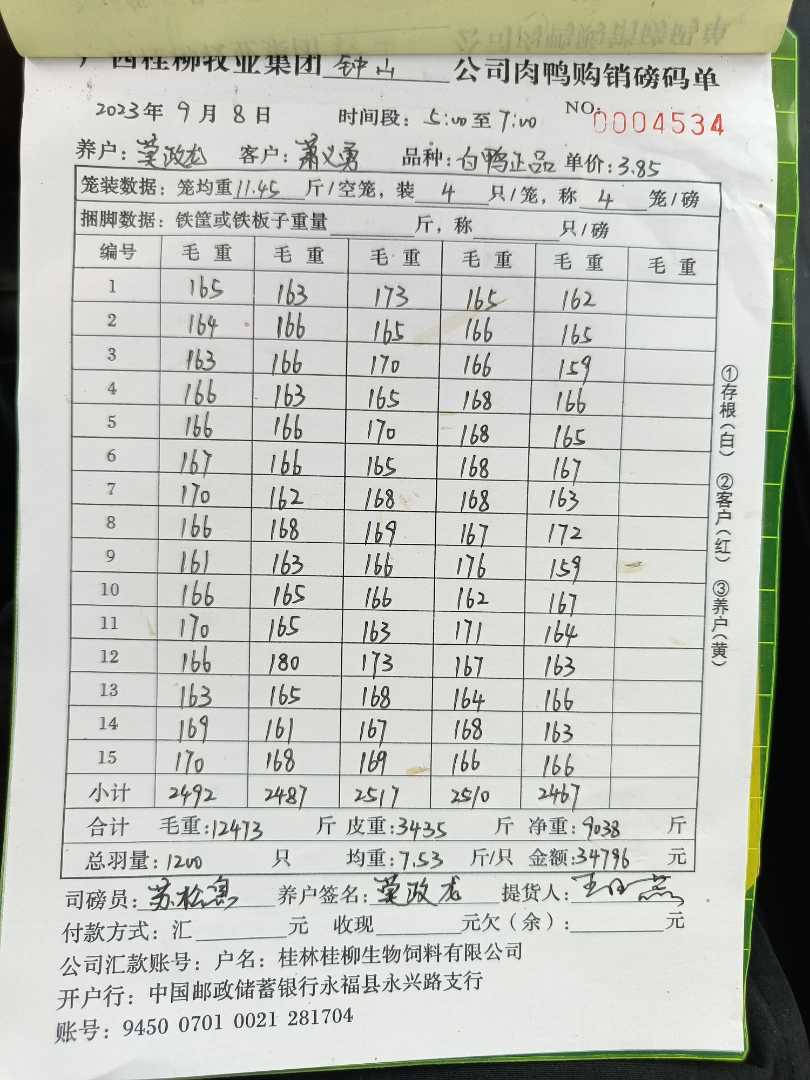 广西桂柳牧业集团 钟山 公司肉鸭购销磅码单
2023年 9月 8日 时间段: 5:00至7:00 NO. 0004534
养户: 莫政龙 客户: 萧义勇 品种: 白鸭正品 单价: 3.85
笼装数据: 笼均重11.45斤/空笼, 装 4 只/笼, 称 4 笼/磅
捆脚数据: 铁筐或铁板子重量 斤, 称 只/磅
编号 毛重 毛重 毛重 毛重 毛重 毛重
1 165 163 173 165 162
2 164 166 165 166 165
3 163 166 170 166 159
4 166 163 165 168 166
5 166 166 170 168 165
6 167 166 165 168 167
7 170 162 168 168 163
8 166 168 169 167 172
9 161 163 166 176 159
10 166 165 166 162 167
11 170 165 163 171 164
12 166 180 173 167 163
13 163 165 168 164 166
14 169 161 167 168 163
15 170 168 169 166 166
小计 2492 2487 2517 2510 2467
合计 毛重: 12473 斤 皮重: 3435 斤 净重: 9038 斤
总羽量: 1200 只 均重: 7.53 斤/只 金额: 34796 元
司磅员: 苏松 养户签名: 莫政龙 提货人:
付款方式: 汇 元 收现 元欠(余): 元
公司汇款账号: 户名: 桂林桂柳生物饲料有限公司
开户行: 中国邮政储蓄银行永福县永兴路支行
账号: 9450 0701 0021 281704
①存根(白) ②客户(红) ③养户(黄)